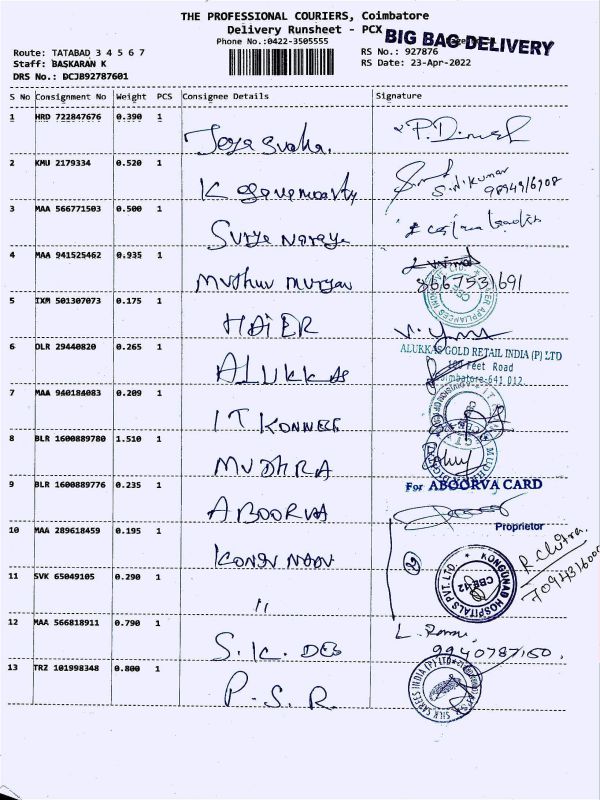 THE PROFESSIONAL COURIERS, Coimbatore
Delivery Runsheet - PCX
BIG BAG DELIVERY
Phone No.:0422-3505555
Route: TATABAD 3 4 5 6 7
RS No.: 927876
Staff: BASKARAN K
RS Date: 23-Apr-2022
DRS No.: DCJB92787601
S No Consignment No Weight PCS Consignee Details Signature
1 HRD 722847676 0.390 1
2 KMU 2179334 0.520 1
3 MAA 566771503 0.500 1 Surya
4 MAA 941525462 0.935 1 Muthu Murgan
8667531691
5 IXM 501307073 0.175 1 HAIER
6 DLR 29440820 0.265 1 ALUKKAS
ALUKKAS GOLD RETAIL INDIA (P) LTD
100 Feet Road
Coimbatore-641 012
7 MAA 940184083 0.209 1 IT KONNECT
8 BLR 1600889780 1.510 1 MUDHRA
9 BLR 1600889776 0.235 1 ABOORVA
For ABOORVA CARD
Proprietor
10 MAA 289618459 0.195 1
KONGUNAD HOSPITALS PVT. LTD.
CBE-12
R. Chitra
11 SVK 65049105 0.290 1 "
12 MAA 566818911 0.790 1 S.K. DES
9940787150
13 TRZ 101998348 0.800 1 P.S.R.